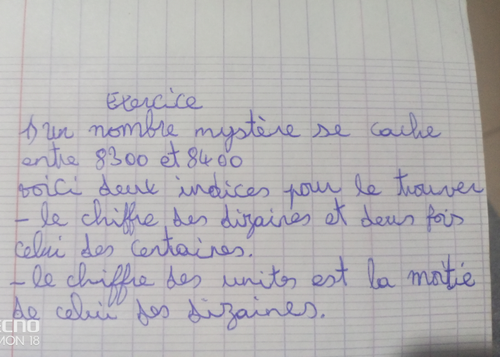 Exercice
1) un nombre mystère se cache
entre 8300 et 8400
voici deux indices pour le trouver
- le chiffre des dizaines et deus fois
celui des centaines.
- le chiffre des unites est la moitie
de celui des dizaines.
CNO
MON 18